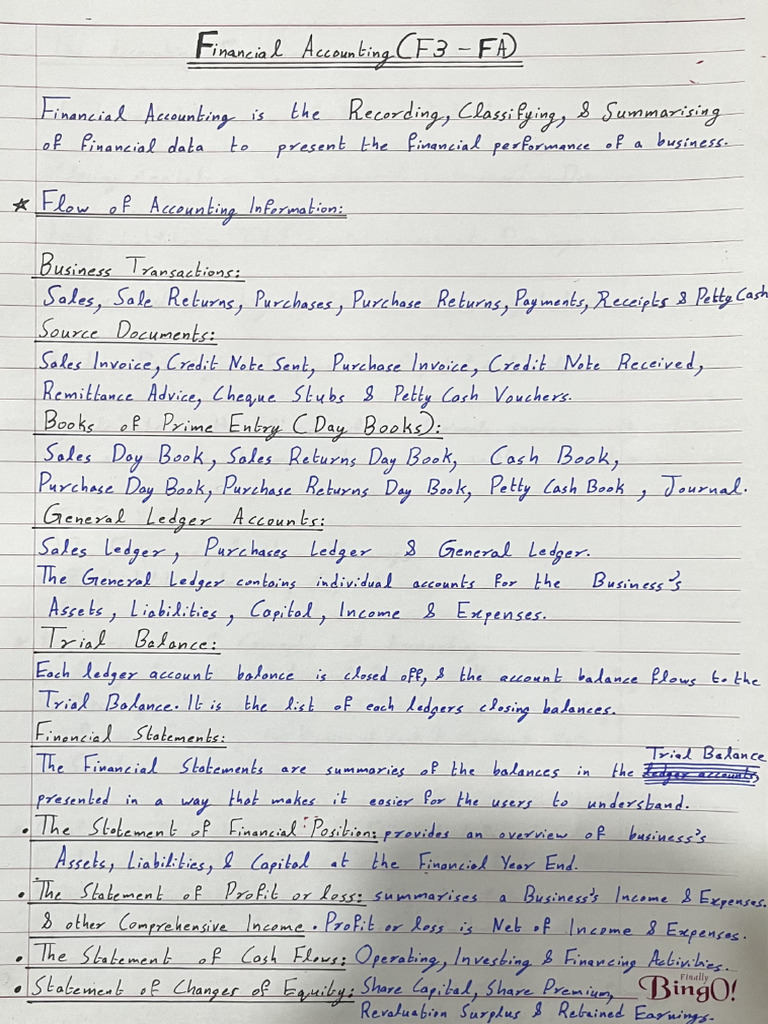 Financial Accounting (F3 - FA)
Financial Accounting is the Recording, Classifying, & Summarising
of financial data to present the financial performance of a business.
* Flow of Accounting Information:
Business Transactions:
Sales, Sale Returns, Purchases, Purchase Returns, Payments, Receipts & Petty Cash
Source Documents:
Sales Invoice, Credit Note Sent, Purchase Invoice, Credit Note Received,
Remittance Advice, Cheque Stubs & Petty Cash Vouchers.
Books of Prime Entry (Day Books):
Sales Day Book, Sales Returns Day Book, Cash Book,
Purchase Day Book, Purchase Returns Day Book, Petty Cash Book, Journal.
General Ledger Accounts:
Sales Ledger, Purchases Ledger & General Ledger.
The General Ledger contains individual accounts for the Business's
Assets, Liabilities, Capital, Income & Expenses.
Trial Balance:
Each ledger account balance is closed off, & the account balance flows to the
Trial Balance. It is the list of each ledgers closing balances.
Financial Statements:
Trial Balance
The Financial Statements are summaries of the balances in the ledger accounts
presented in a way that makes it easier for the users to understand.
• The Statement of Financial Position: provides an overview of business's
Assets, Liabilities, & Capital at the Financial Year End.
• The Statement of Profit or loss: summarises a Business's Income & Expenses.
& other Comprehensive Income. Profit or loss is Net of Income & Expenses.
• The Statement of Cash Flows: Operating, Investing & Financing Activities.
• Statement of Changes of Equity: Share Capital, Share Premium,
Revaluation Surplus & Retained Earnings.
Finally
BingO!